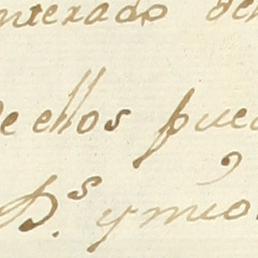 nterado de
de ellos pue
D.s y mio